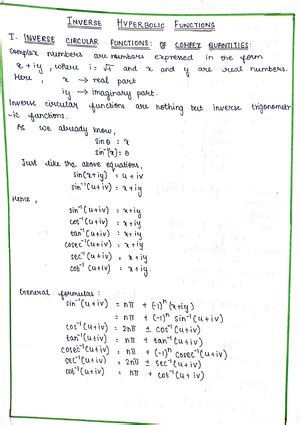 INVERSE HYPERBOLIC FUNCTIONS
I. INVERSE CIRCULAR FUNCTIONS: OF COMPEX QUANTITIES:
Complex numbers are numbers expressed in the form
x + iy, where i = √-1 and x and y are real numbers.
Here, x → real part
iy → imaginary part.
Inverse circular functions are nothing but inverse trigonometr
-ic functions.
As we already know,
sinθ = x
sin⁻¹(x) = θ
Just like the above equations,
sin(x+iy) = u + iv
sin⁻¹(u+iv) = x+iy
Hence,
sin⁻¹(u+iv) = x+iy
cos⁻¹(u+iv) = x+iy
tan⁻¹(u+iv) = x+iy
cosec⁻¹(u+iv) = x+iy
sec⁻¹(u+iv) = x+iy
cot⁻¹(u+iv) = x+iy
General formulas:
sin⁻¹(u+iv) = nπ + (-1)ⁿ(x+iy)
= nπ + (-1)ⁿ sin⁻¹(u+iv)
cos⁻¹(u+iv) = 2nπ ± cos⁻¹(u+iv)
tan⁻¹(u+iv) = nπ + tan⁻¹(u+iv)
cosec⁻¹(u+iv) = nπ + (-1)ⁿ cosec⁻¹(u+iv)
sec⁻¹(u+iv) = 2nπ ± sec⁻¹(u+iv)
cot⁻¹(u+iv) = nπ + cot⁻¹(u+iv)